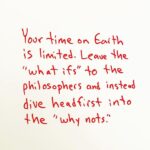 Your time on Earth
is limited. Leave the
"what ifs" to the
philosophers and instead
dive headfirst into
the "why nots."